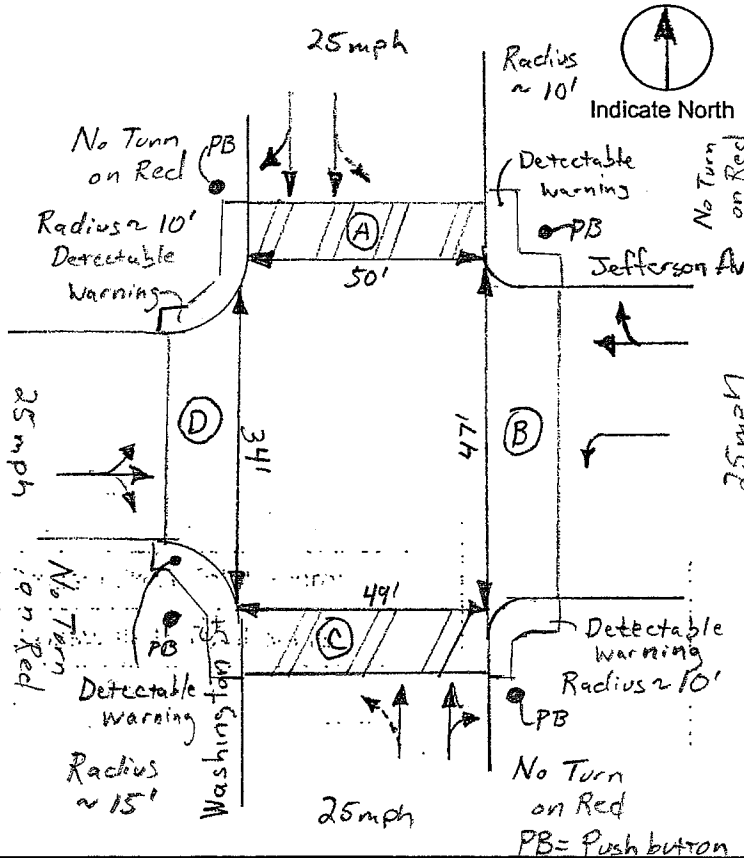 25mph
Radius
~ 10'
Indicate North
No Turn
on Red
PB
Detectable
Warning
No Turn
on Red
Radius ~ 10'
Detectable
Warning
A
PB
50'
Jefferson Av
25mph
D
34'
47'
B
25mph
49'
No Turn
on Red
PB
C
Detectable
Warning
Detectable
Warning
Radius ~ 10'
PB
Radius
~ 15'
Washington St
25mph
No Turn
on Red
PB= Push button